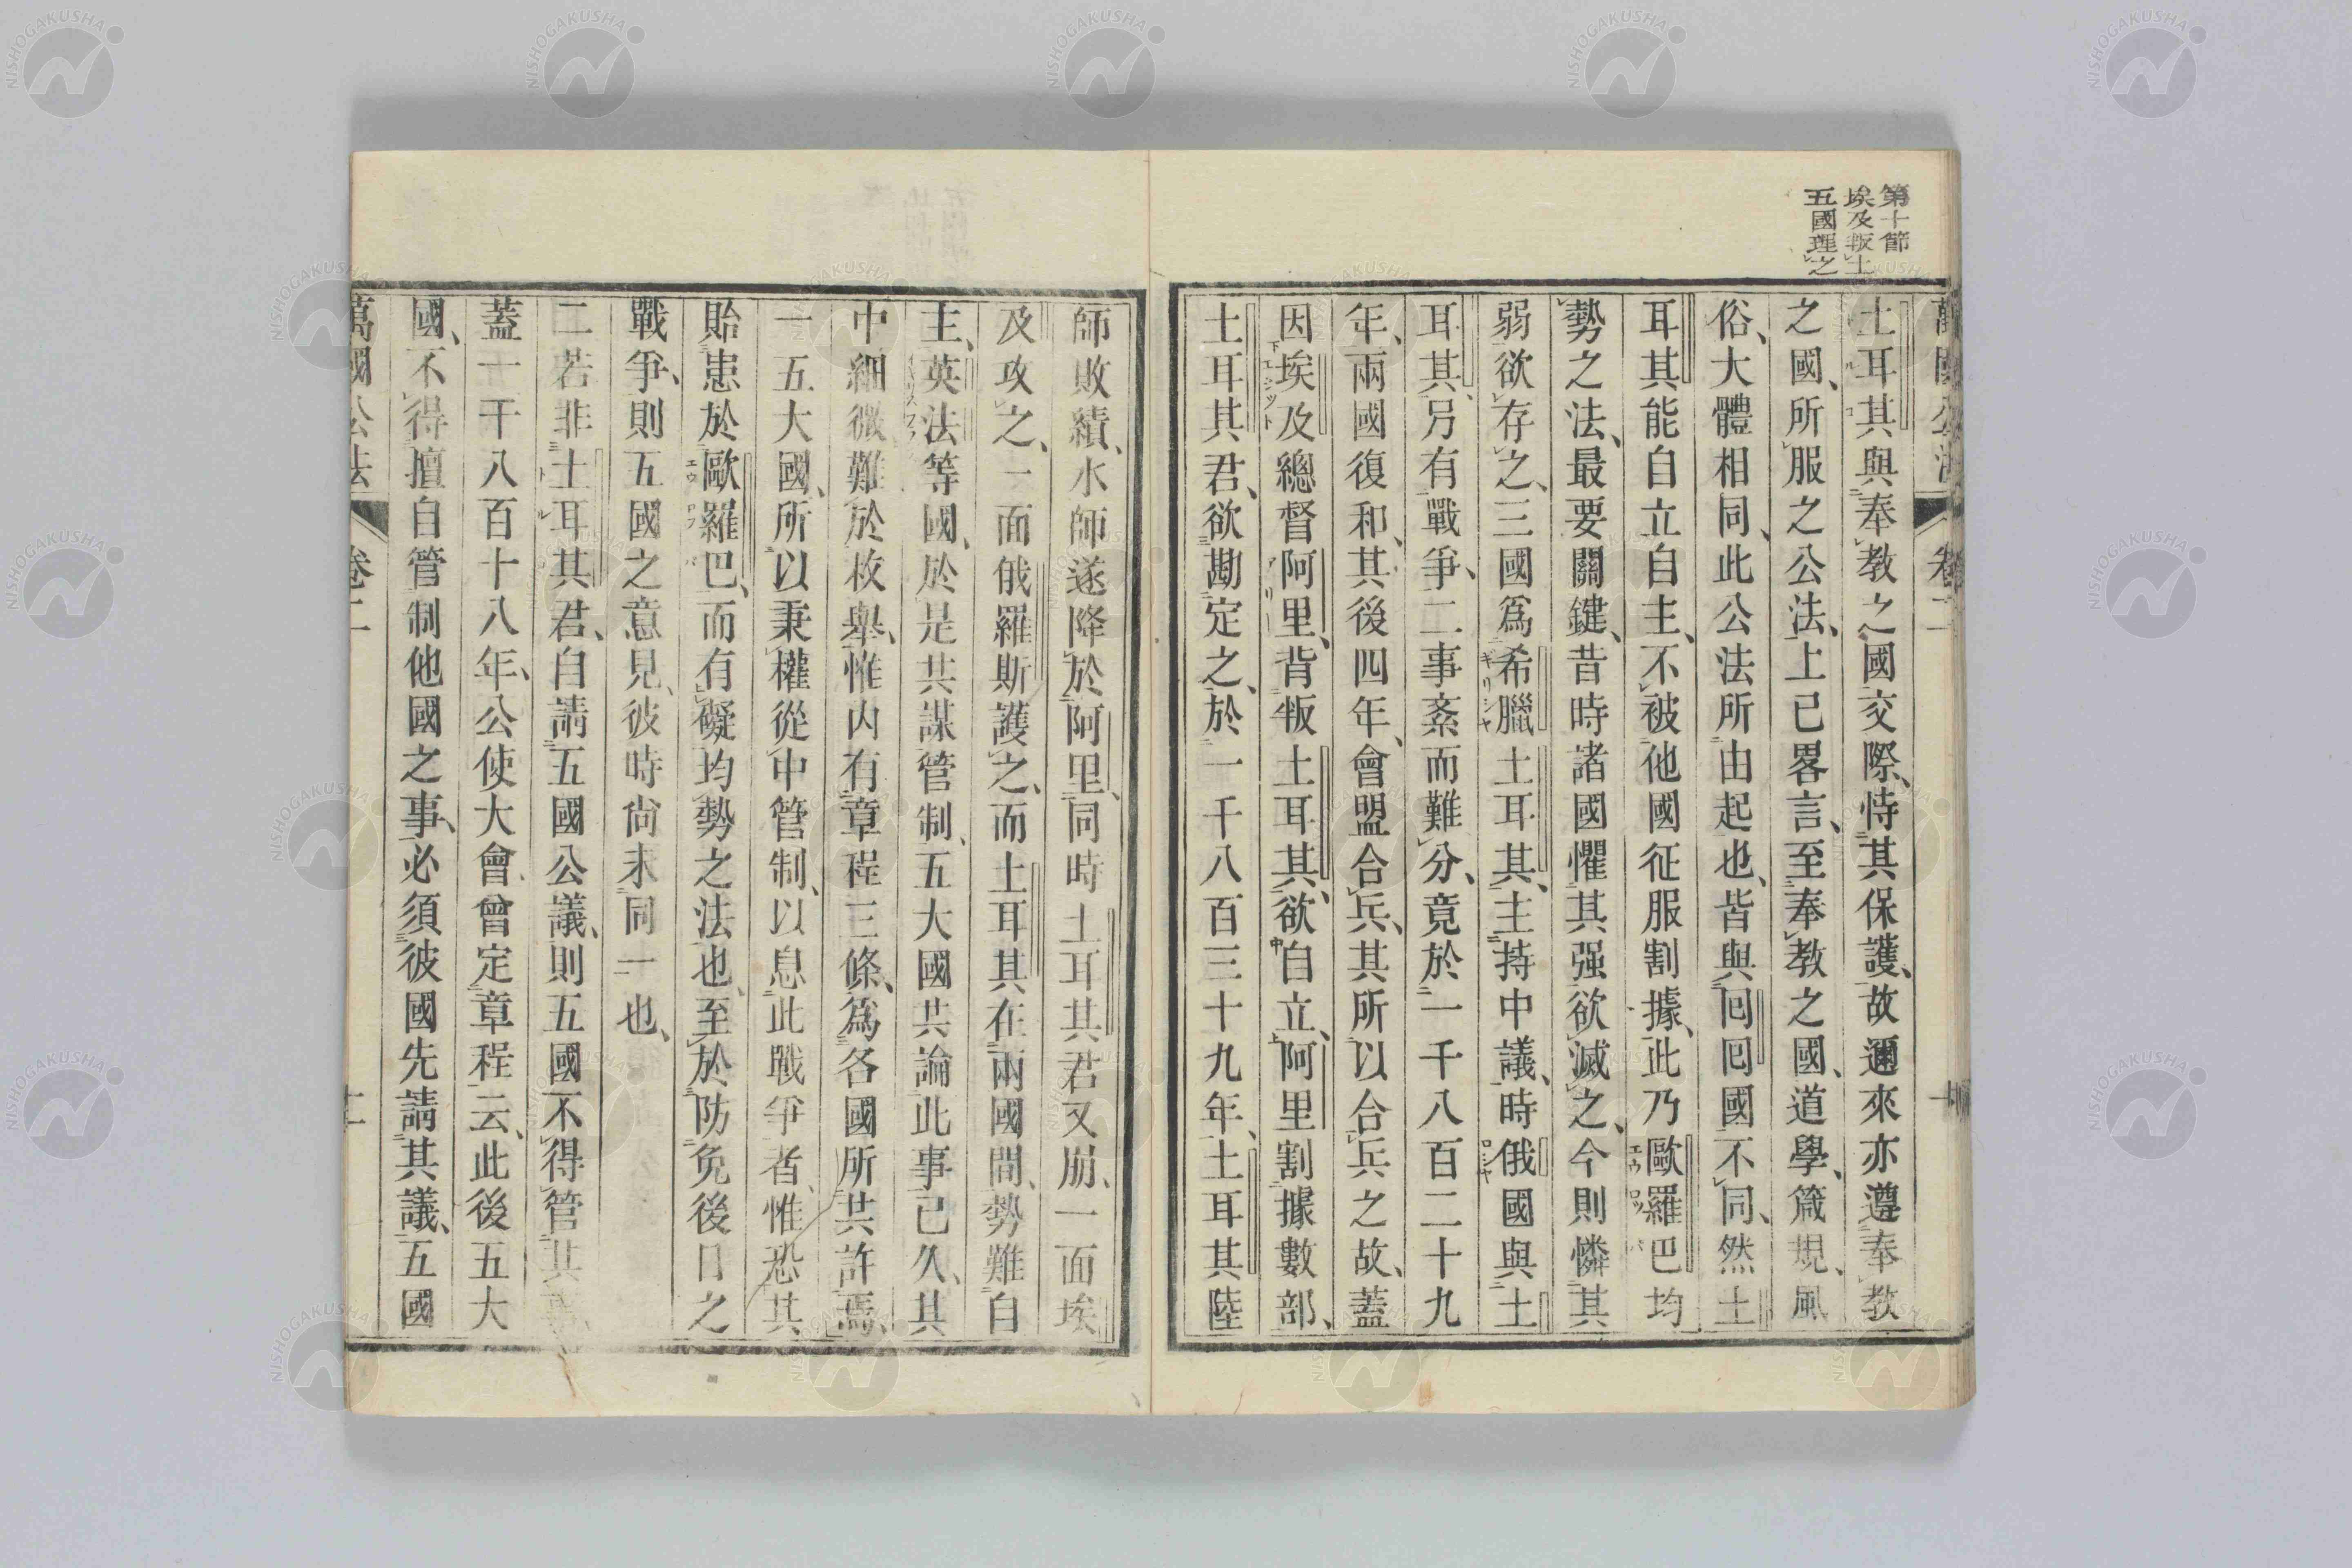 第十節
埃及叛土
五國理之
土耳其與奉教之國交際、恃其保護、故邇來亦遵奉教
之國、所服之公法、上已畧言、至奉教之國、道學、箴規、風
俗、大體相同、此公法所由起也、皆與囘囘國不同、然土
耳其能自立自主、不被他國征服割據、此乃歐羅巴均
勢之法、最要關鍵、昔時諸國懼其强欲滅之、今則憐其
弱欲存之、三國爲希臘土耳其、主持中議、時俄國與土
耳其、另有戰爭、二事紊而難分、竟於一千八百二十九
年、兩國復和、其後四年、會盟合兵、其所以合兵之故、蓋
因埃及總督阿里、背叛土耳其、欲自立、阿里割據數部、
土耳其君、欲勘定之、於一千八百三十九年、土耳其陸
師敗績、水師遂降於阿里、同時土耳其君又崩、一面埃
及攻之、一面俄羅斯護之、而土耳其在兩國間、勢難自
主、英法等國、於是共謀管制、五大國共論此事已久、其
中細微、難於枚舉、惟内有章程三條、爲各國所共許焉、
一五大國、所以秉權從中管制、以息此戰爭者、惟恐其
貽患於歐羅巴、而有礙均勢之法也、至於防免後日之
戰爭、則五國之意見、彼時尚未同一也、
二若非土耳其君、自請五國公議、則五國不得管其事、
蓋一千八百十八年、公使大會、曾定章程云、此後五大
國、不得擅自管制他國之事、必須彼國先請其議、五國
萬國公法 卷二